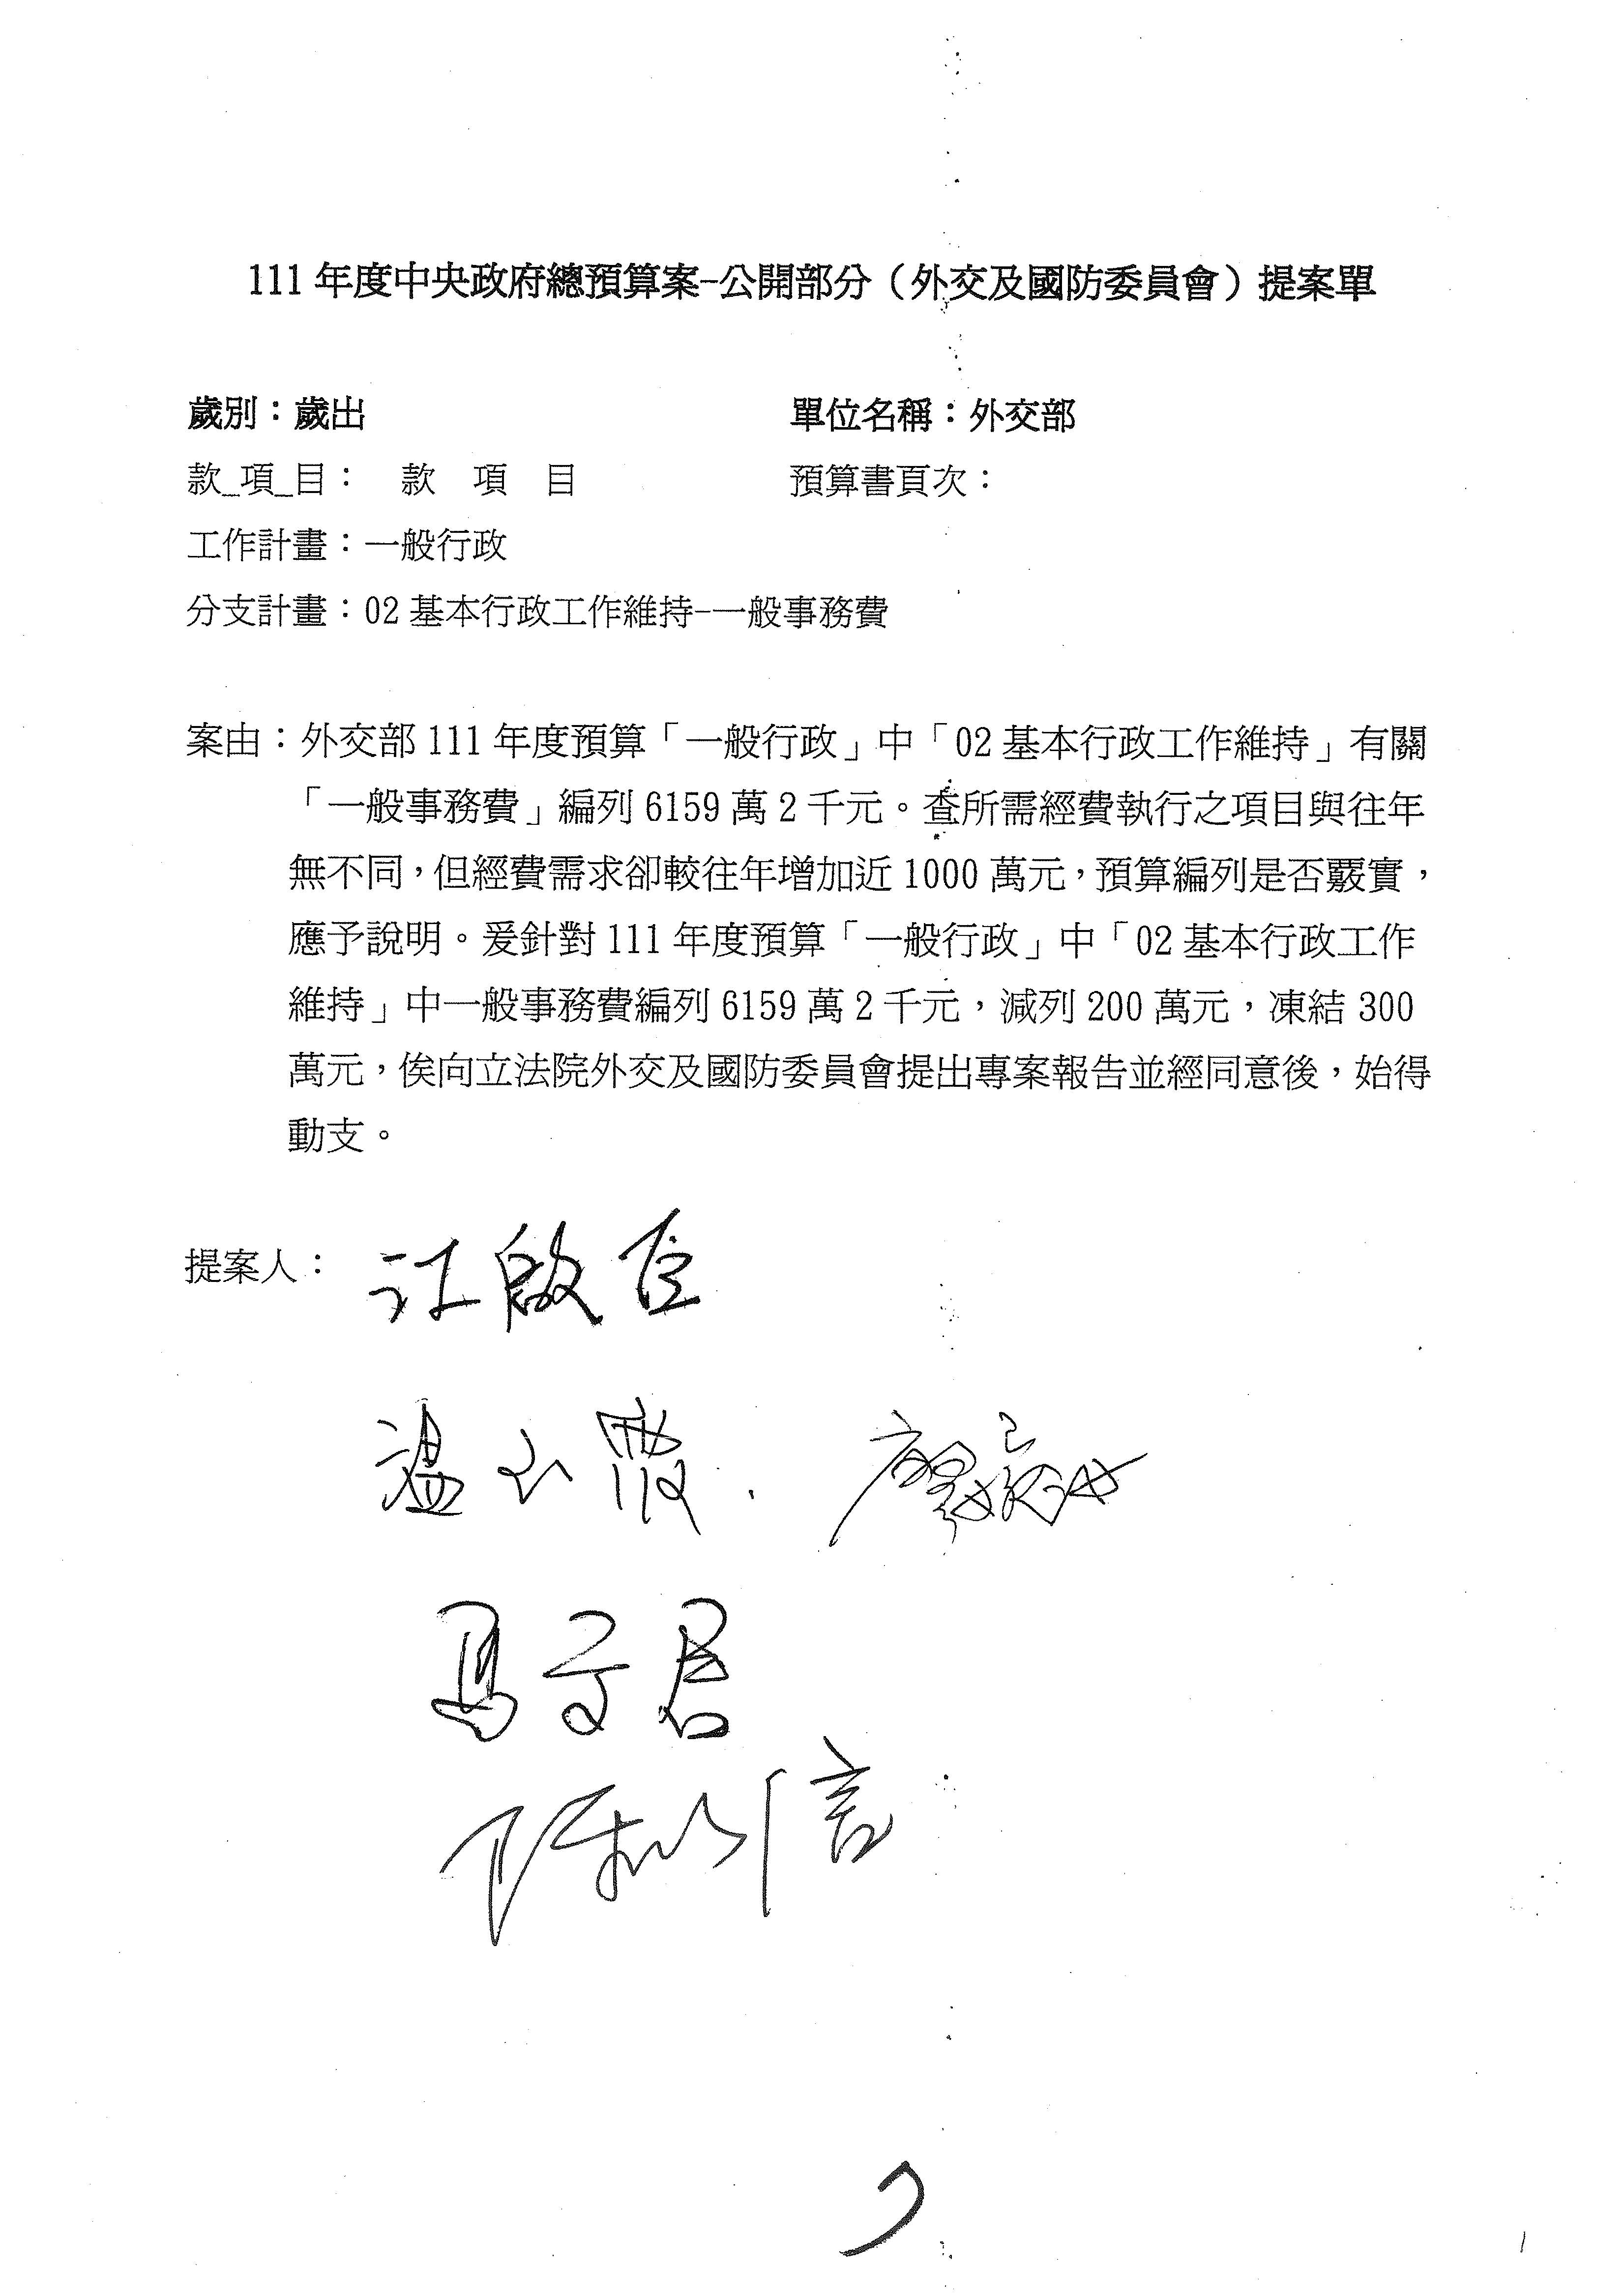 111年度中央政府總預算案-公開部分（外交及國防委員會）提案單
歲別：歲出 單位名稱：外交部
款_項_目： 款 項 目 預算書頁次：
工作計畫：一般行政
分支計畫：02基本行政工作維持-一般事務費
案由：外交部111年度預算「一般行政」中「02基本行政工作維持」有關
「一般事務費」編列6159萬2千元。查所需經費執行之項目與往年
無不同，但經費需求卻較往年增加近1000萬元，預算編列是否覈實，
應予說明。爰針對111年度預算「一般行政」中「02基本行政工作
維持」中一般事務費編列6159萬2千元，減列200萬元，凍結300
萬元，俟向立法院外交及國防委員會提出專案報告並經同意後，始得
動支。
提案人：江啟臣
溫玉霞
馬文君
陳以信
1